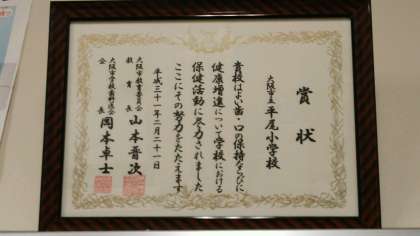 賞状
大阪市立 平尾小学校
貴校はよい歯・口の保持ならびに
健康増進について学校における
保健活動に尽力されました
ここにその努力をたたえます
平成三十一年二月二十一日
大阪市教育委員会
教育長 山本晋次
大阪市学校歯科医会
会長 岡本卓士